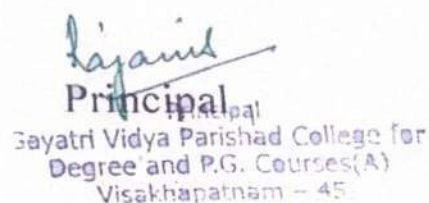 Principal
Principal
Gayatri Vidya Parishad College for
Degree and P.G. Courses(A)
Visakhapatnam - 45